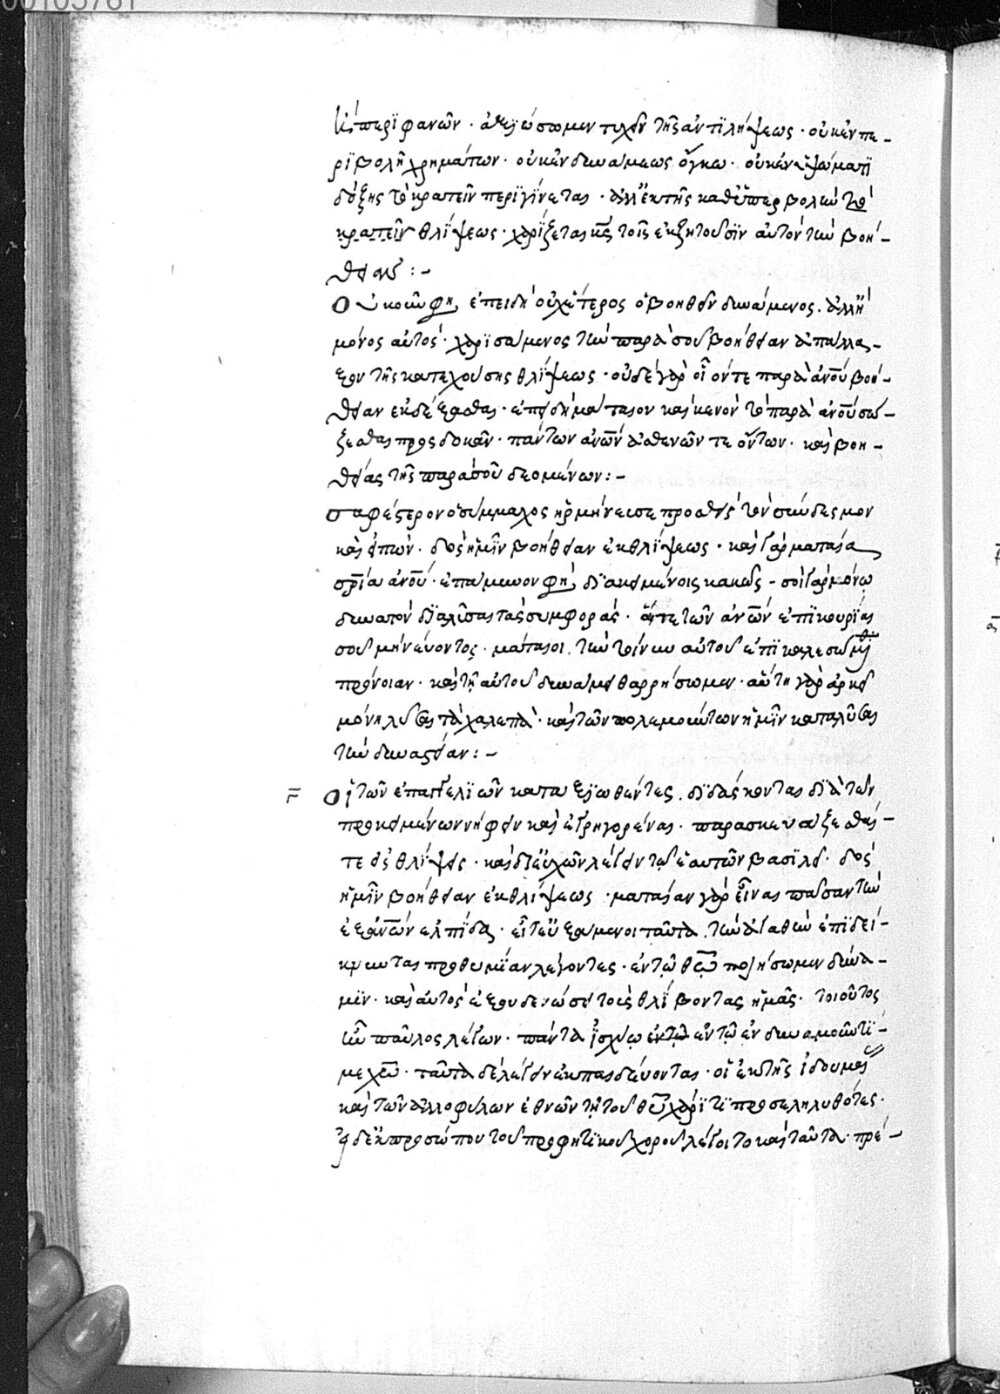 00105761
καὶ περιφανῶν · ἀξιώσωμεν τυχεῖν τῆς ἀντιλήψεως · οὐκ ἐν πε-
ριβολῇ χρημάτων · οὐκ ἐν δυνάμεως ὄγκῳ · οὐκ ἐν ὑψώματι
δόξης τὸ κρατεῖν περιγίνεται · ἀλλ' ἐκ τῆς καθ' ὑπερβολὴν τὸ
κρατεῖν θλίψεως · χαρίζεται κς τοῖς ἐκζητοῦσιν αὐτὸν τὴν βοή-
θειαν :-
Οὐκοῦν φη, ἐπειδὴ οὐχ ἕτερος ὁ βοηθεῖν δυνάμενος · ἀλλ' ἢ
μόνος αὐτός · χαρισάμενος τὴν παρὰ σου βοήθειαν ἀπάλλα-
ξον τῆς κατεχούσης θλίψεως · οὐδὲ γὰρ οἷόν τε παρὰ ἀνου βοή-
θειαν ἐκδέξασθαι · ἐπειδὴ μάταιον καὶ κενὸν τὸ παρὰ ἀνου σώ-
ζεσθαι προσδοκᾶν · πάντων ἀνων ἀσθενῶν τε ὄντων · καὶ βοη-
θείας τῆς παρὰ σοῦ δεομένων :-
σαφέστερον ὁ σύμμαχος ἡρμήνευσε προσθεὶς τὸν σύνδεσμον
καὶ εἰπών · δὸς ἡμῖν βοήθειαν ἐκ θλίψεως · καὶ γὰρ ματαία
σρία ἀνου · ἐπάμυνον φη, διακειμένοις κακῶς - σοὶ γὰρ μόνῳ
δυνατὸν διαλῦσαι τὰς συμφοράς · ἅτε τῶν ἀνων ἐπικουρίας
σοῦ μὴ νεύοντος · μάταιοι · τὴν τοίνυν αὐτοῦ ἐπικαλεσώμεθα
πρόνοιαν · καὶ τῇ αὐτοῦ δυνάμει θαρρήσωμεν · αὕτη γὰρ ἀρκεῖ
μόνη λῦσαι τὰ χαλεπά · καὶ τῶν πολεμούντων ἡμῖν καταλῦσαι
τὴν δυναστείαν :-
Οἱ τῶν ἐπαγγελιῶν καταξιωθέντες · διδάσκονται διὰ τῶν
προκειμένων νήφειν καὶ ἐγρηγορέναι · παρασκευάζεσθαί-
τε εἰς θλίψεις · καὶ δι' εὐχῶν λέγειν τῷ ἑαυτῶν βασιλεῖ · δὸς
ἡμῖν βοήθειαν ἐκ θλίψεως · ματαίαν γὰρ εἶναι πᾶσαν τὴν
ἐξ ἀνων ἐλπίδα · εἶτ' εὐξάμενοι ταῦτα · τὴν ἀγαθὴν ἐπιδεί-
κνυνται προθυμίαν λέγοντες · ἐν τῷ θεῷ ποιήσωμεν δύνα-
μιν · καὶ αὐτὸς ἐξουδενώσει τοὺς θλίβοντας ἡμᾶς · τοιοῦτος
ἦν παῦλος λέγων · πάντα ἰσχύω ἐν τῷ ἐν τῷ ἐνδυναμοῦντί-
με χω · ταῦτα δὲ λέγειν ἐκπαιδεύονται · οἱ ἐκ τῆς ἰδουμαίας
καὶ τῶν ἀλλοφύλων ἐθνῶν τῇ τοῦ θεοῦ χάριτι προσεληλυθότες ·
εἰ δ' ἐκ προσώπου τοῦ προφητικοῦ χοροῦ λέγοιτο καὶ ταῦτα · πρέ-